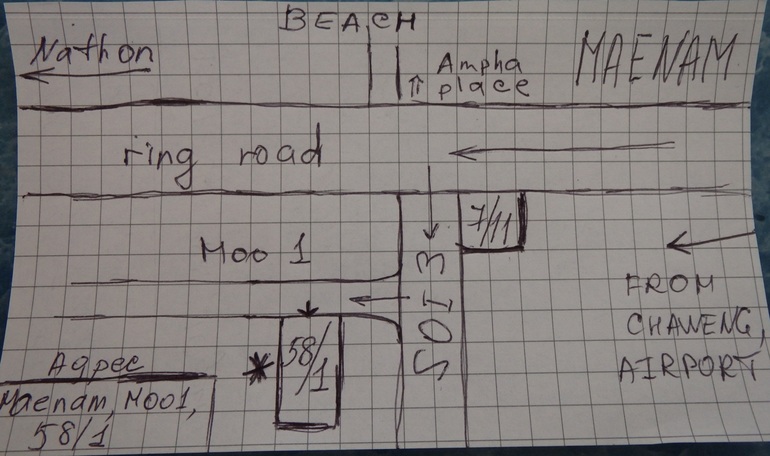 BEACH
Nathon
Ampha
place
MAENAM
ring road
7/11
Moo 1
SOI 3
FROM
CHAWENG,
AIRPORT
58/1
Адрес
Maenam, Moo1,
58/1